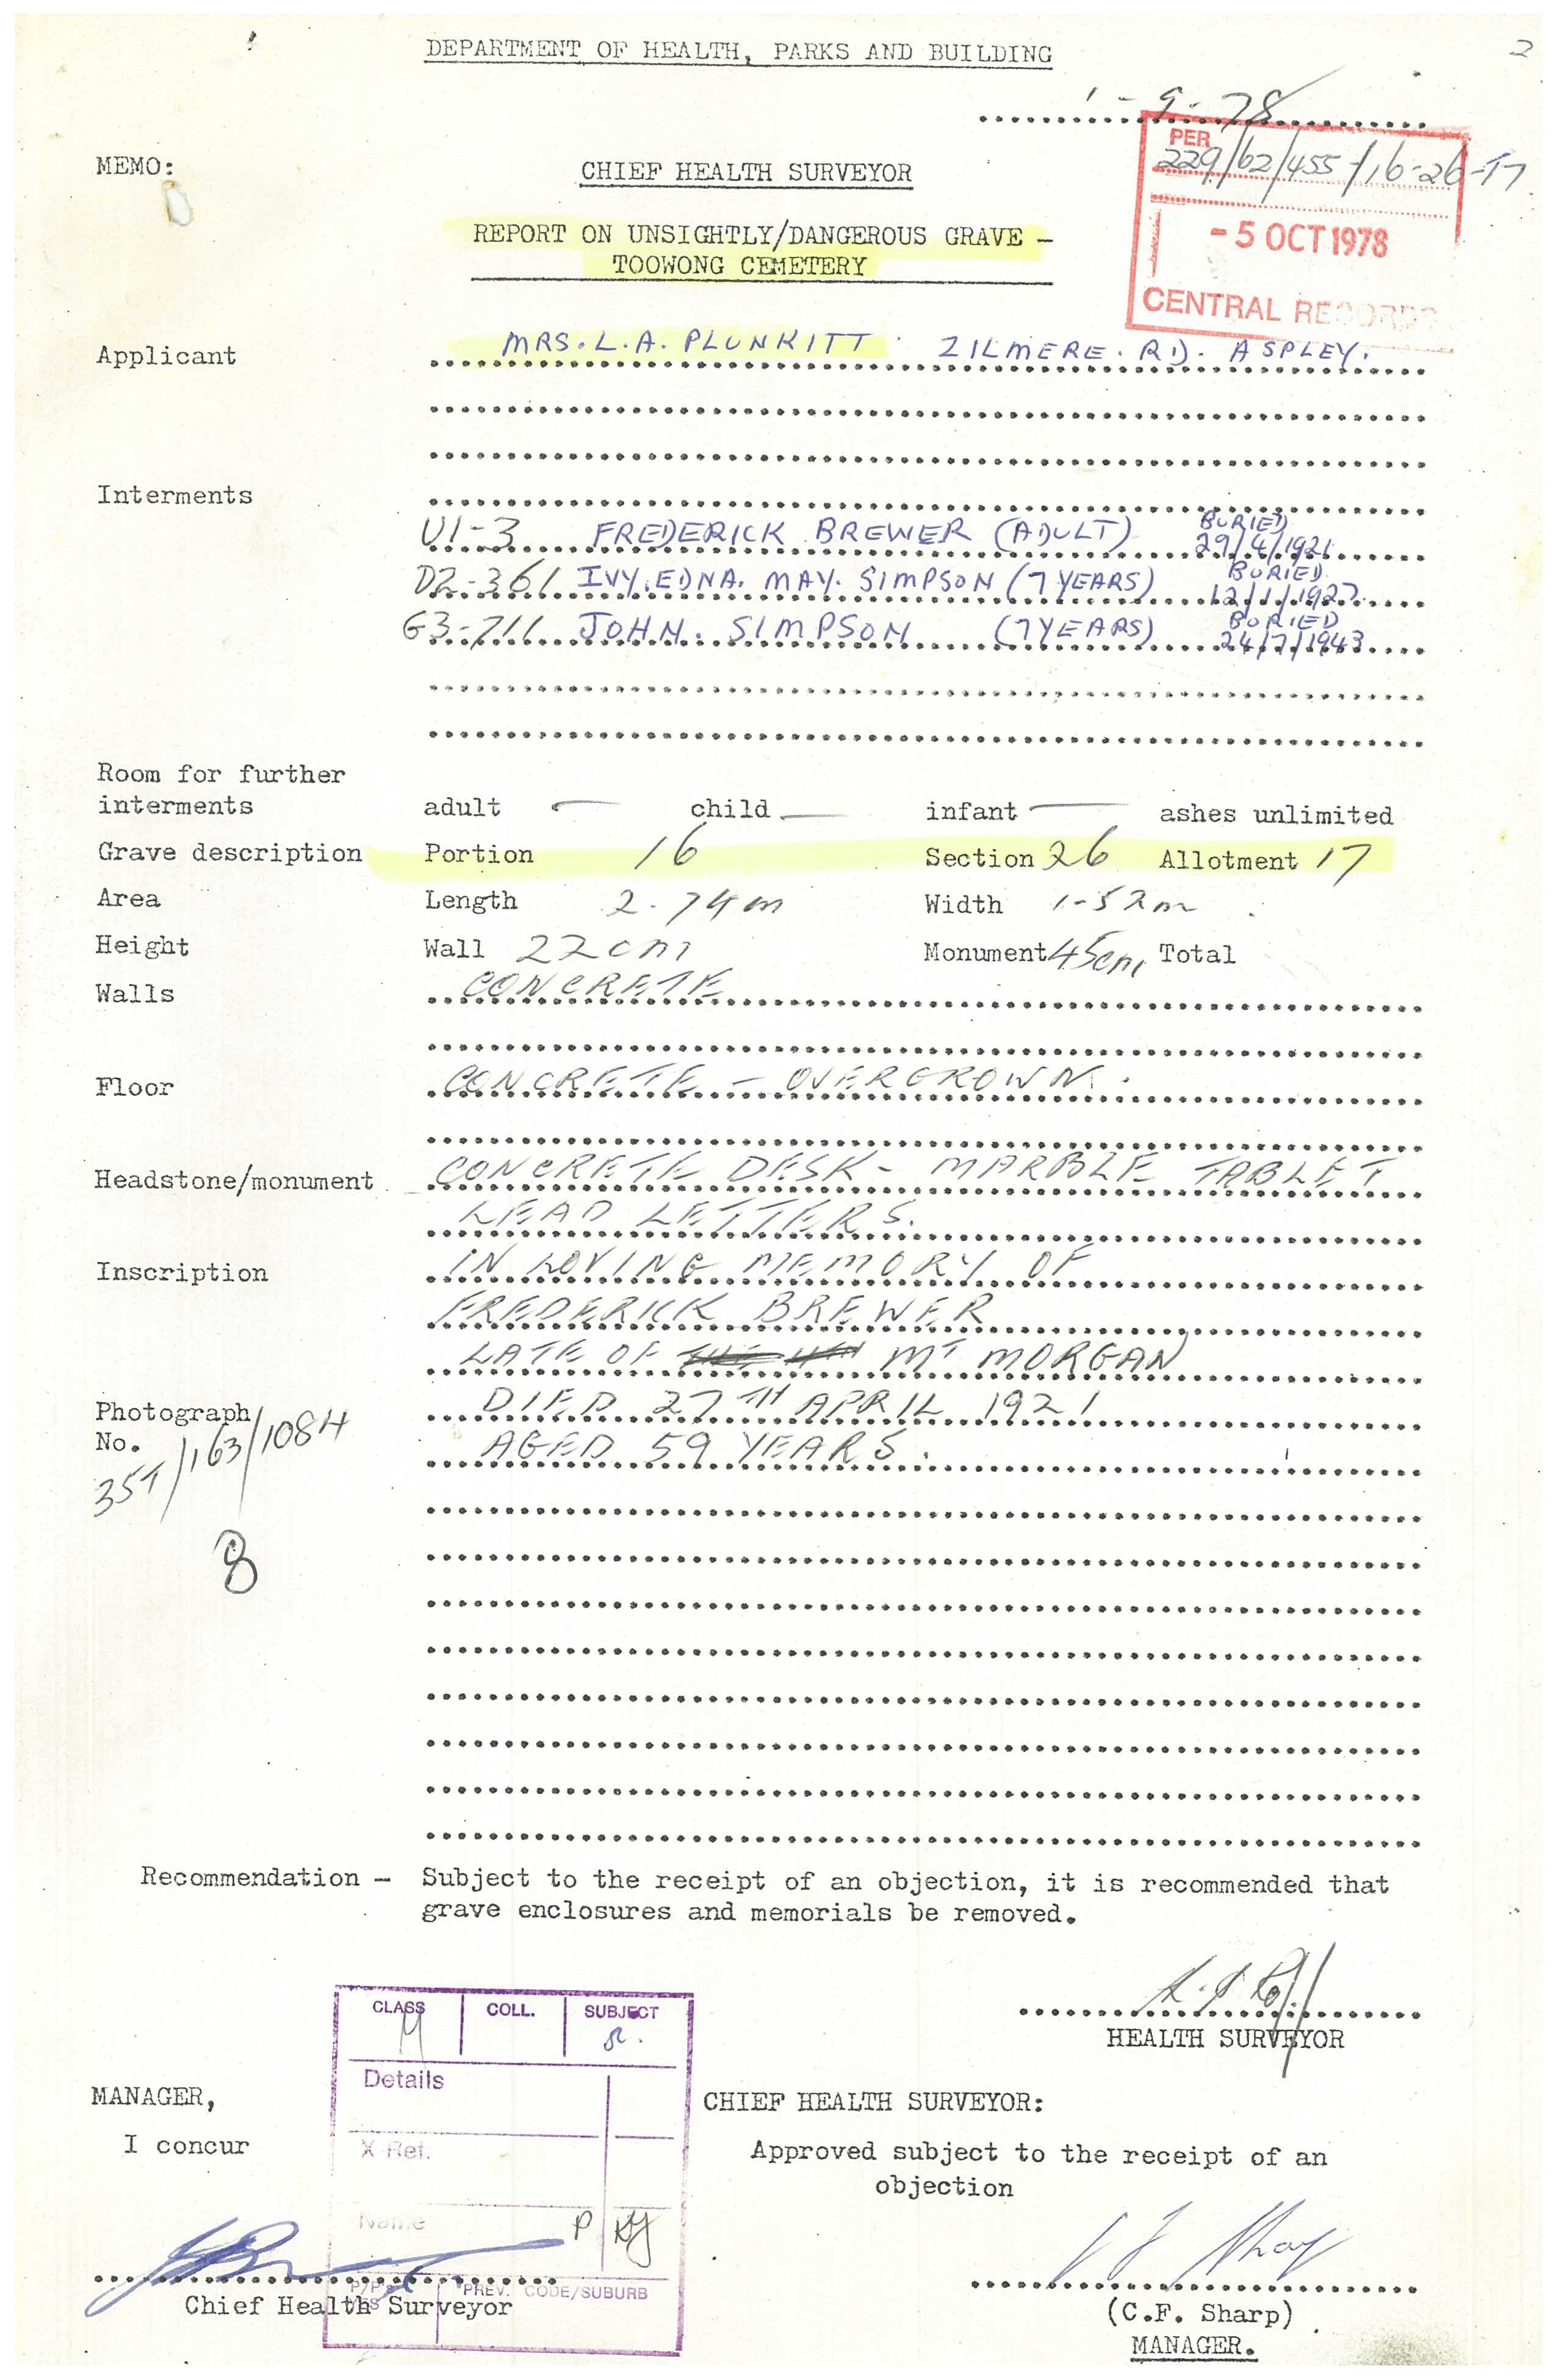 2
DEPARTMENT OF HEALTH, PARKS AND BUILDING
1-9-78
MEMO:
CHIEF HEALTH SURVEYOR
PER
229/62/455/16-26-17
- 5 OCT 1978
CENTRAL RECORDS
REPORT ON UNSIGHTLY/DANGEROUS GRAVE -
TOOWONG CEMETERY
Applicant MRS. L.A. PLUNKITT ZILMERE. RD. ASPLEY.
Interments
U1-3 FREDERICK BREWER (ADULT) BURIED 29/4/1921
D2-361 IVY. EDNA. MAY. SIMPSON (7 YEARS) BURIED 12/1/1927
G3-711 JOHN. SIMPSON (7 YEARS) BURIED 24/7/1943
Room for further
interments adult — child — infant — ashes unlimited
Grave description Portion 16 Section 26 Allotment 17
Area Length 2.74m Width 1-52m
Height Wall 22cm Monument 45cm Total
Walls CONCRETE
Floor CONCRETE - OVERGROWN.
Headstone/monument CONCRETE DESK - MARBLE TABLET
LEAD LETTERS.
Inscription IN LOVING MEMORY OF
FREDERICK BREWER
LATE OF MT MORGAN
DIED 27TH APRIL 1921
AGED 59 YEARS.
Photograph
No.
357/163/1084
8
Recommendation - Subject to the receipt of an objection, it is recommended that
grave enclosures and memorials be removed.
HEALTH SURVEYOR
CLASS COLL. SUBJECT
Details
X Ref.
Name P
P/P's PREV. CODE/SUBURB
MANAGER,
I concur
Chief Health Surveyor
CHIEF HEALTH SURVEYOR:
Approved subject to the receipt of an
objection
(C.F. Sharp)
MANAGER.